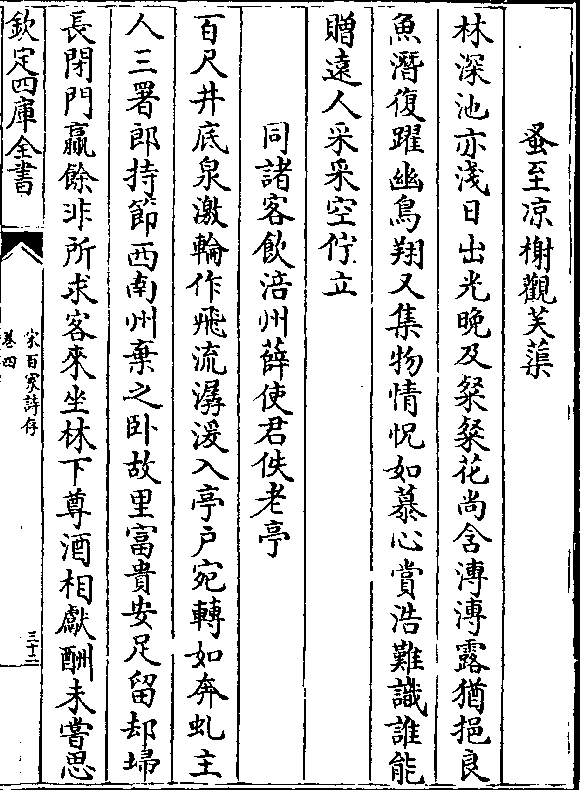 蚤至凉榭觀芙蕖
林深池亦淺日出光晚及粲粲花尚含漙漙露猶挹良
魚潛復躍幽鳥翔又集物情怳如慕心賞浩難識誰能
贈遠人采采空佇立
同諸客飲涪州薛使君佚老亭
百尺井底泉激輪作飛流潺湲入亭户宛轉如奔虬主
人三署郎持節西南州棄之卧故里富貴安足留却埽
長閉門贏餘非所求客來坐林下尊酒相獻酬未嘗思
欽定四庫全書
宋百家詩存
卷四
三十二